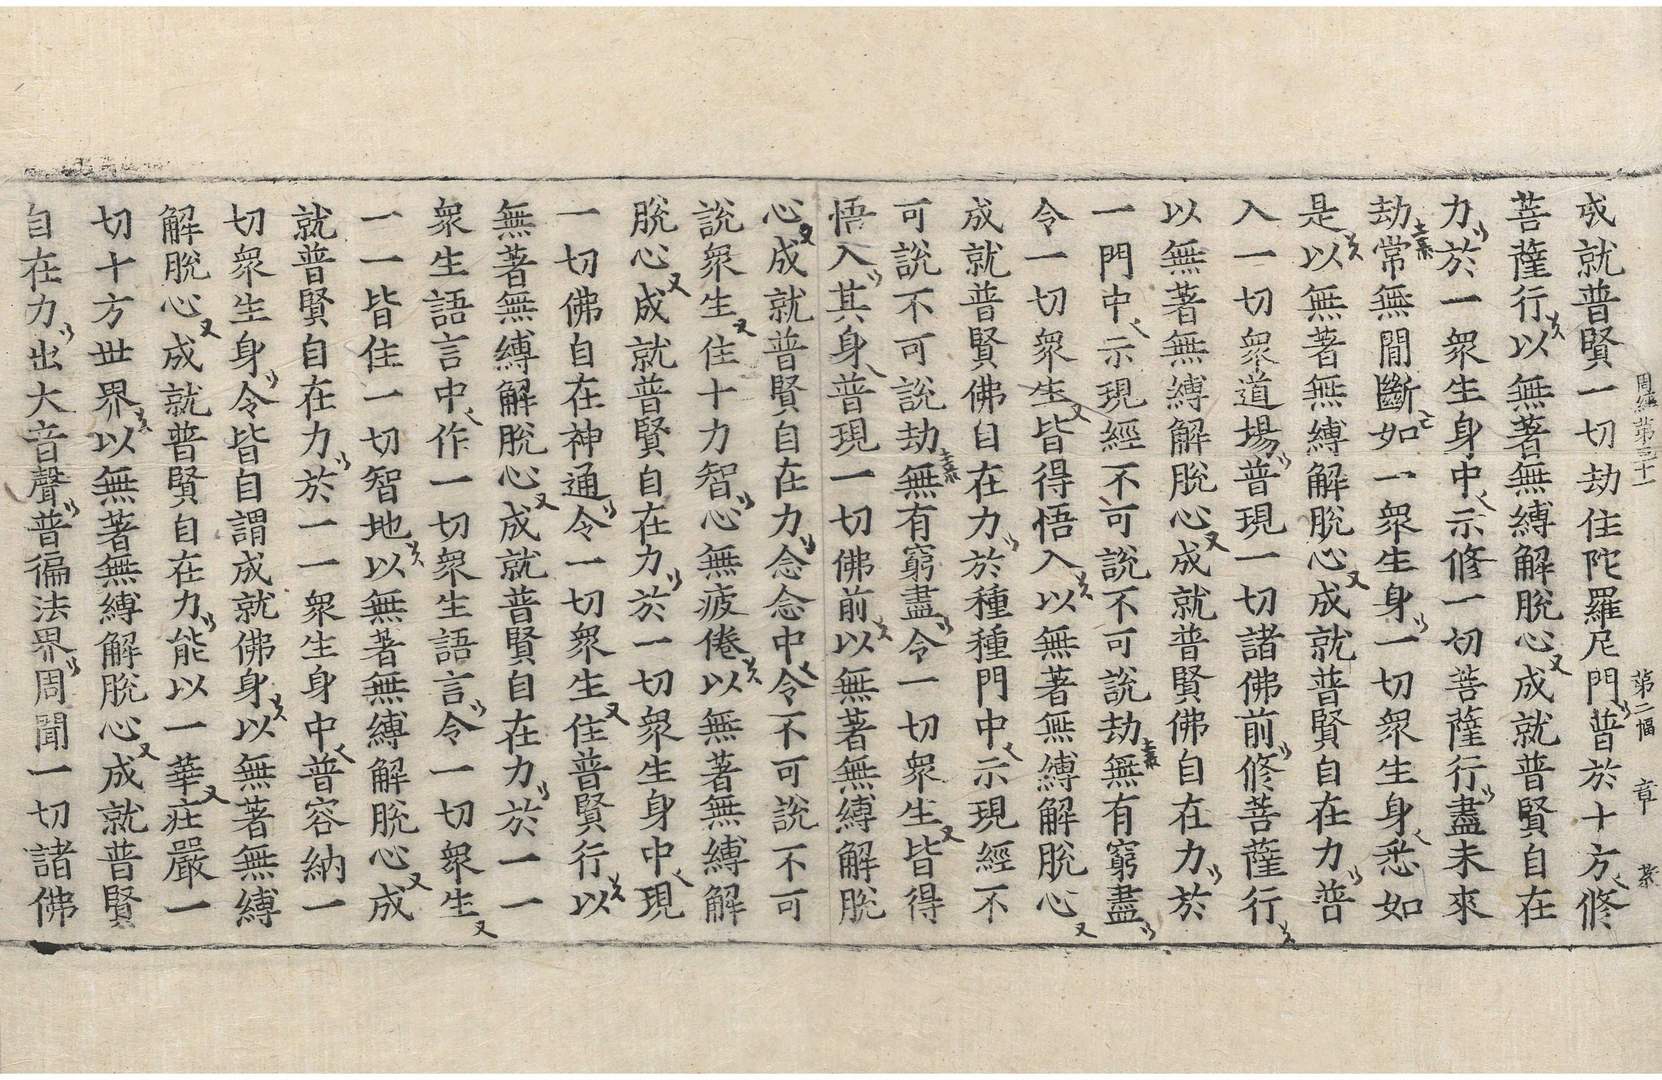 周經第三十一
第二幅
章
成就普賢一切劫住陀羅尼門普於十方修
菩薩行以無著無縛解脫心成就普賢自在
力於一衆生身中示修一切菩薩行盡未來
劫常無閒斷如一衆生身一切衆生身悉如
是以無著無縛解脫心成就普賢自在力普
入一切衆道場普現一切諸佛前修菩薩行
以無著無縛解脫心成就普賢佛自在力於
一門中示現經不可說不可說劫無有窮盡
令一切衆生皆得悟入以無著無縛解脫心
成就普賢佛自在力於種種門中示現經不
可說不可說劫無有窮盡令一切衆生皆得
悟入其身普現一切佛前以無著無縛解脫
心成就普賢自在力念念中令不可說不可
說衆生住十力智心無疲倦以無著無縛解
脫心成就普賢自在力於一切衆生身中現
一切佛自在神通令一切衆生住普賢行以
無著無縛解脫心成就普賢自在力於一一
衆生語言中作一切衆生語言令一切衆生
一一皆住一切智地以無著無縛解脫心成
就普賢自在力於一一衆生身中普容納一
切衆生身令皆自謂成就佛身以無著無縛
解脫心成就普賢自在力能以一華莊嚴一
切十方世界以無著無縛解脫心成就普賢
自在力出大音聲普徧法界周聞一切諸佛